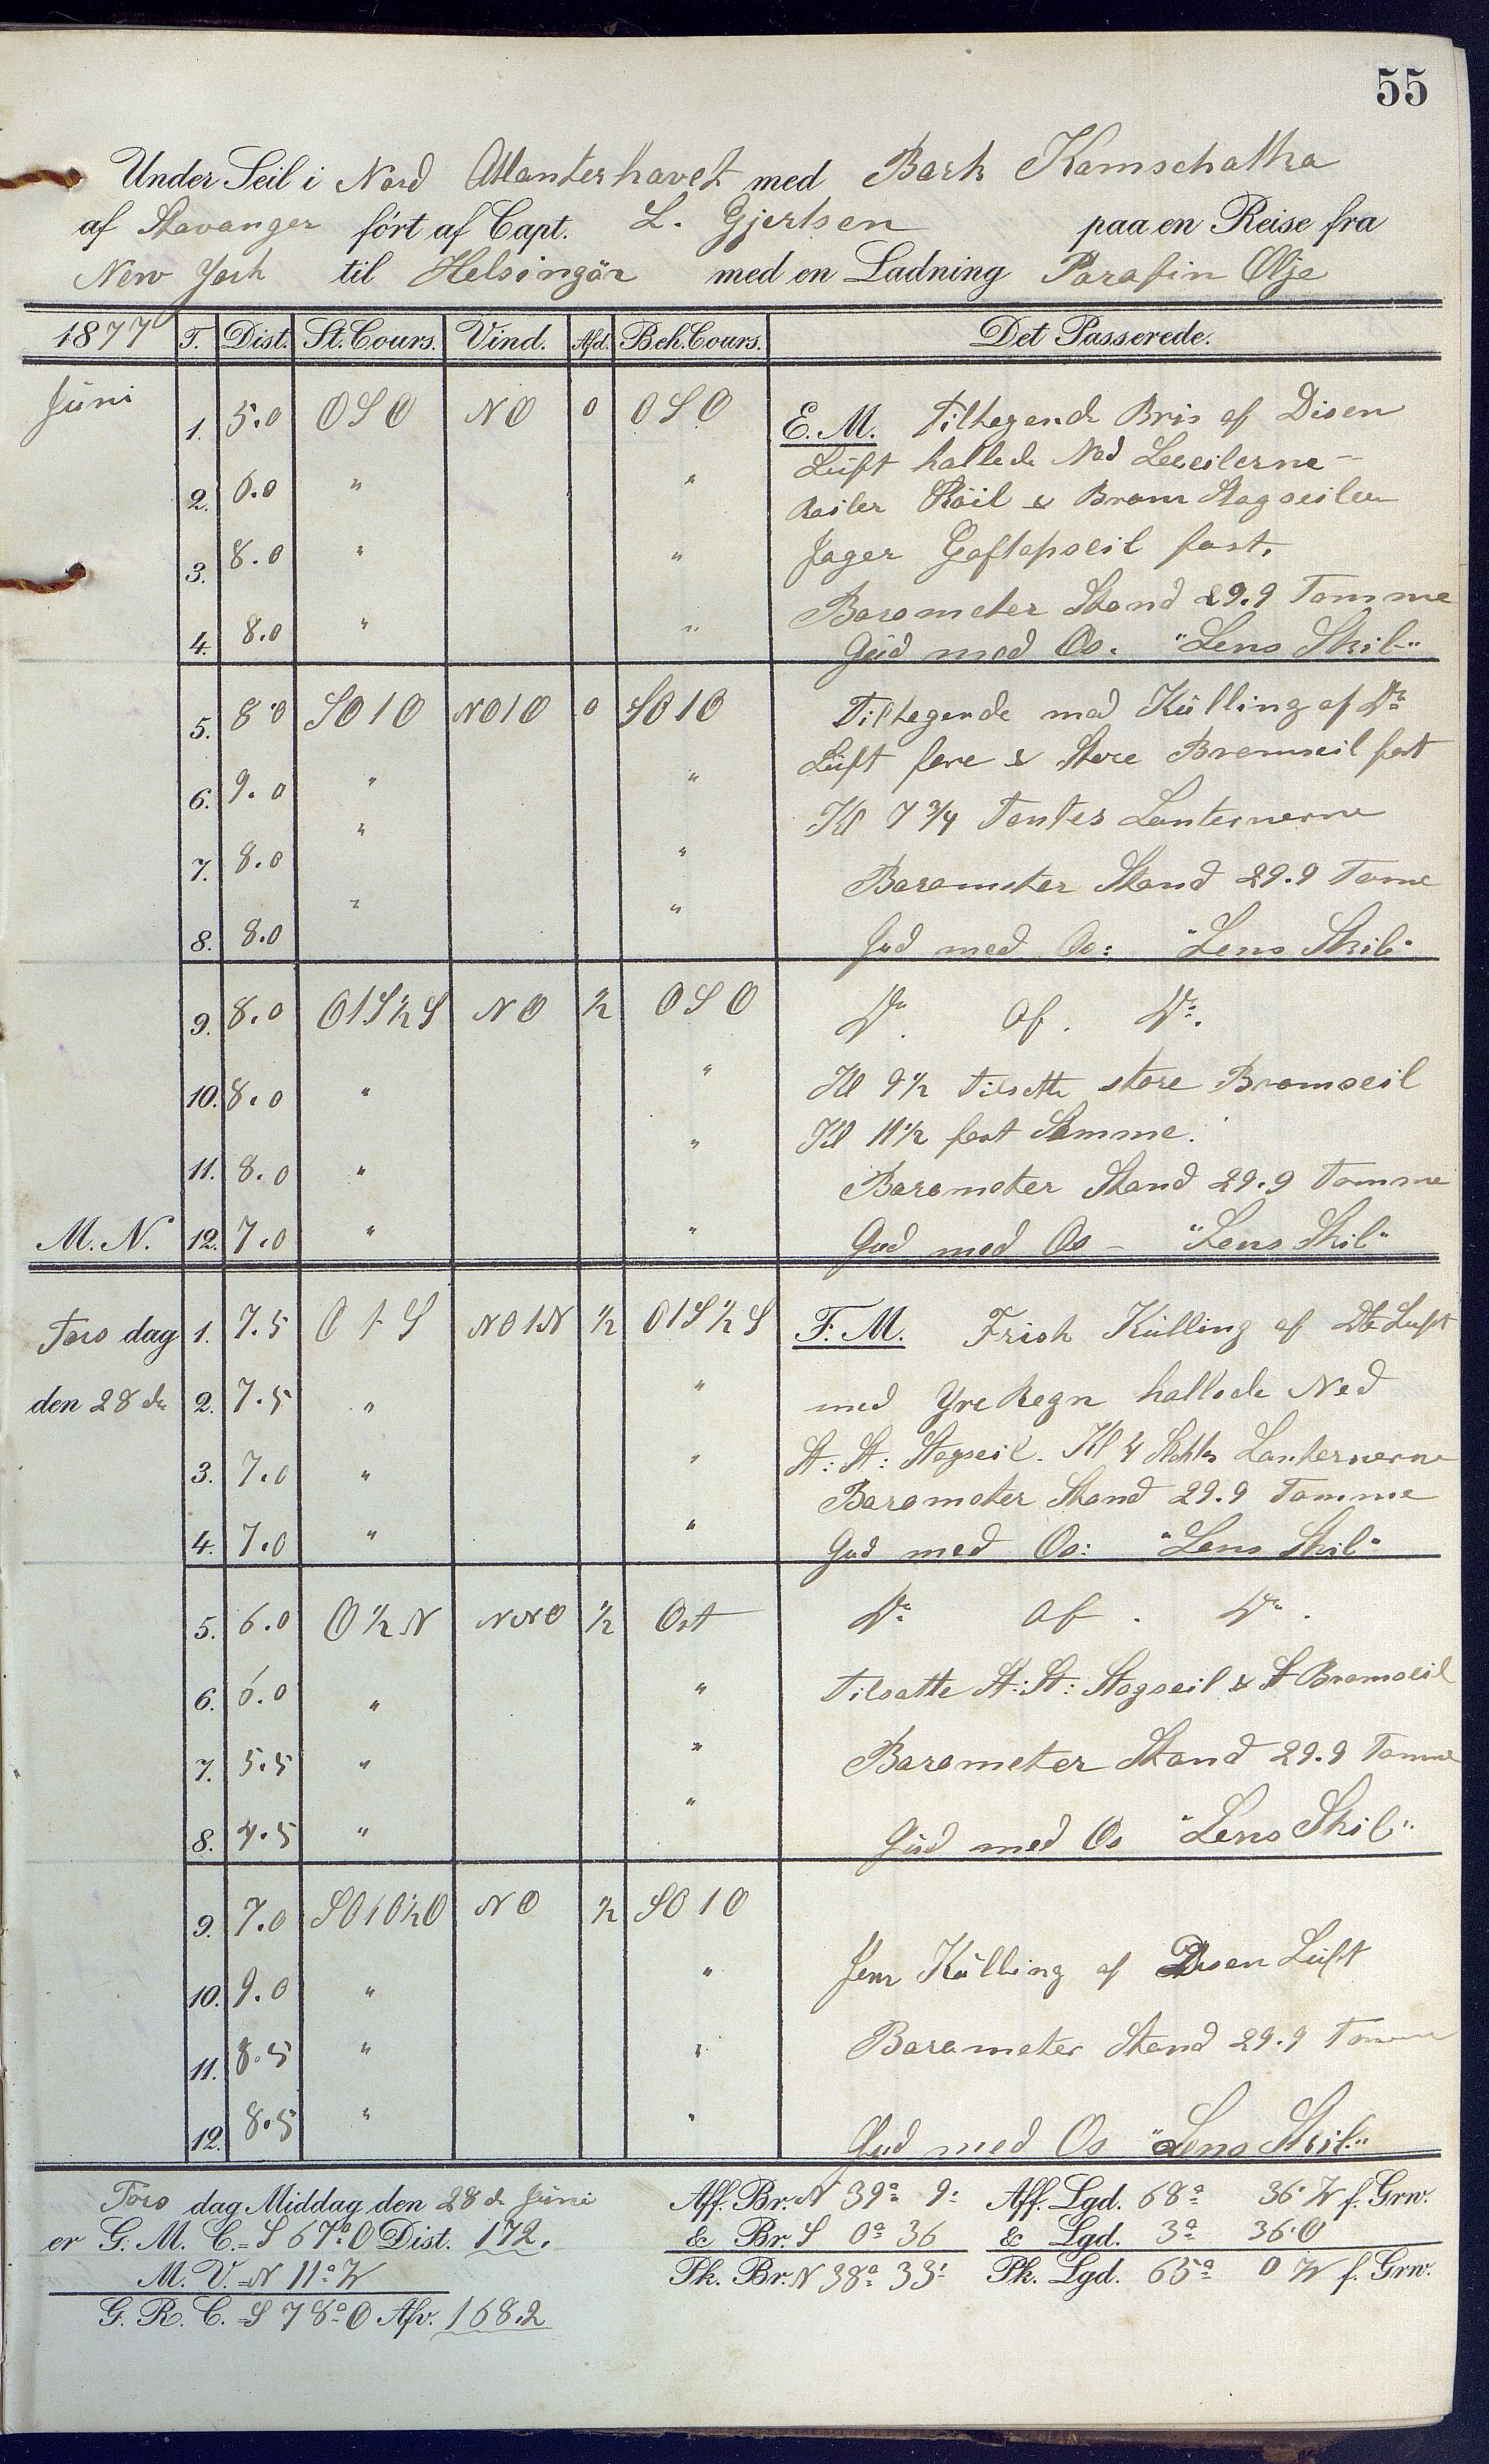 55
Under Seil i Nord Atlanterhavet med Bark Kamschatka
af Stavanger fört af Capt. L. Gjertsen paa en Reise fra
New York til Helsingör med en Ladning Parafin Olje
1877 T. Dist. St. Cours. Vind. Afd. Beh. Cours. Det Passerede.
Juni 1. 5.0 OSO NO 0 OSO E. M. Tiltagende Bris af Disen
Luft hallede Ned Leeseilerne
2. 6.0 " " Röil & Bram Stagseilen
3. 8.0 " " Jager Gaftopseil fast.
Barometer Stand 29.9 Tomme
4. 8.0 " " Gud med Os. "Lens Skib"
5. 8.0 SO1O NO1O 0 SO1O Tiltagende med Külling af Do
Luft fore & Store Bramseil fast
6. 9.0 " "
Kl 7 3/4 Tentes Lanternerne
7. 8.0 " "
Barometer Stand 29.9 Tome
8. 8.0 " " Gud med Os: "Lens Skib"
9. 8.0 O1S½S NO ½ OSO Do. af. Do.
10. 8.0 " " Kl 9½ tilsatte store Bramseil
Kl 11½ fast Samme.
11. 8.0 " " Barometer Stand 29.9 Tomme
M. N. 12. 7.0 " " Gud med Os - "Lens Skib"
Tors dag 1. 7.5 O1S NO1N ½ O1S½S F. M. Frisk Külling af Do Luft
den 28de 2. 7.5 " " med Yre Regn hallede Ned
3. 7.0 " " St: St: Stagseil. Kl 4 Lanternerne
Barometer Stand 29.9 Tomme
4. 7.0 " " Gud med Os: "Lens Skib"
5. 6.0 O½N NNO ½ Ost Do af. Do.
6. 6.0 " " Tilsatte St: St: Stagseil & St Bramseil
7. 5.5 " " Barometer Stand 29.9 Tomme
8. 4.5 " " Gud med Os "Lens Skib"
9. 7.0 SO1O½O NO ½ SO1O
10. 9.0 " " Jevn Külling af Disen Luft
11. 8.5 " " Barometer Stand 29.9 Tomme
12. 8.5 " " Gud med Os "Lens Skib"
Tors dag Middag den 28de Juni Aff. Br. N 39° 9' Aff. Lgd. 68° 36' W f. Grw.
er G. M. C. = S 67° O Dist. 172. & Br. S 0° 36 & Lgd. 3° 36' O
M. V. = N 11° W Pk. Br. N 38° 33' Pk. Lgd. 65° 0 W f. Grw.
G. R. C. = S 78° O Afv. 168.2